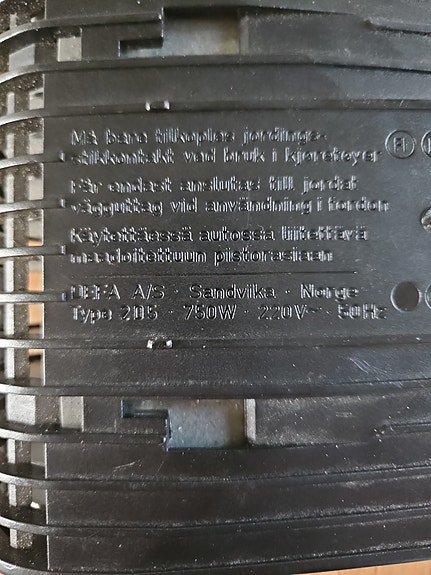 Må bare tilkoples jordings-
stikkontakt ved bruk i kjøretøyer
Får endast anslutas till jordat
vägguttag vid användning i fordon
Käytettäessä autossa liitettävä
maadoitettuun pistorasiaan
DEFA A/S · Sandvika · Norge
Type 205 · 750W · 220V~ · 50Hz
FI